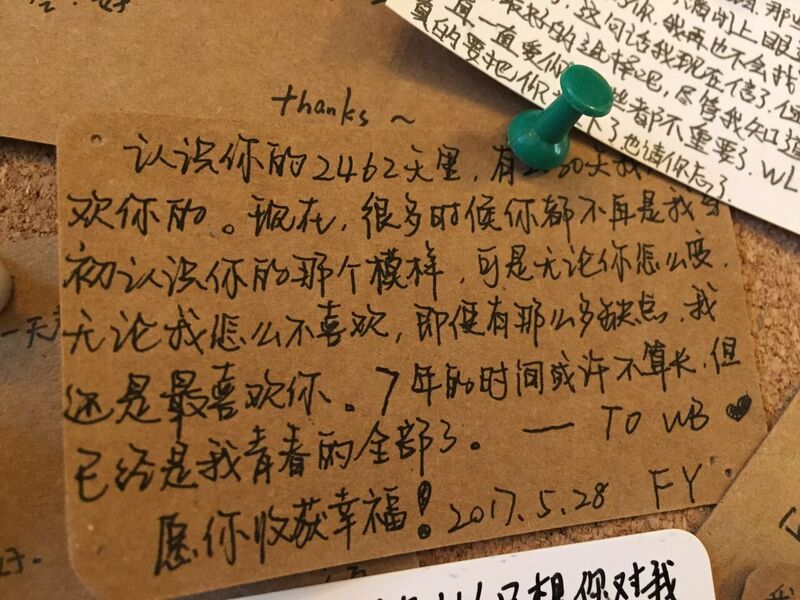 thanks ~
认识你的2462天里，有
欢你的。现在，很多时候你都不再是我
初认识你的那个模样，可是无论你怎么变，
无论我怎么不喜欢，即便有那么多缺点，我
还是最喜欢你。7年的时间或许不算长，但
已经是我青春的全部了。— TO WB ♥
愿你收获幸福！2017.5.28 FY
我再也不会找
这句话我现在信了
最好的选择吧，尽管我知道
直一直爱你 些都不重要了. WL
真的要把你 了也请你忘了.
一天
只想你对我